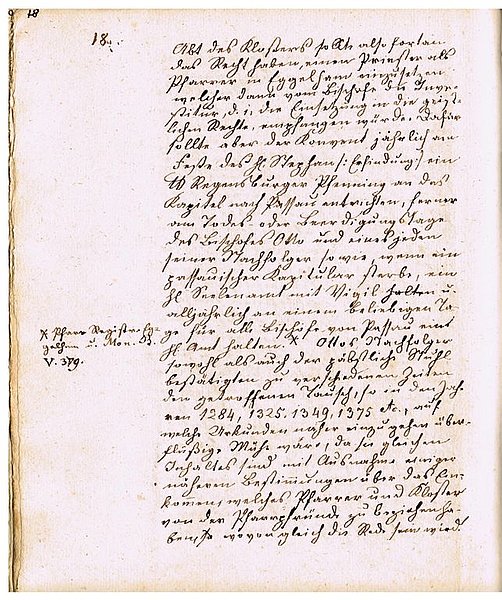 18
18.
Abt des Klosters sollte also fortan
das Recht haben, einen Priester als
Pfarrer in Eggelham einzusetzen
welcher dann vom Bischofe die Inve-
stitur, d. i. die Einsetzung in die geist-
lichen Rechte, empfangen würde. Dafür
sollte aber der Konvent jährlich am
Feste des hl. Stephan /: Erfindung :/ ein
℔ Regensburger Pfenning an das
Kapitel nach Passau entrichten, ferner
am Todes- oder Beerdigungstage
des Bischofes Otto und eines jeden
seiner Nachfolger sowie, wenn ein
passauischer Kapitular sterbe, ein
hl. Seelenamt mit Vigil halten u.
alljährlich an einem beliebigen Ta-
ge für alle Bischöfe von Passau ein
hl. Amt halten. X Ottos Nachfolger
sowohl als auch der päbstliche Stuhl
bestätigten zu verschiedenen Zeiten
den getroffenen Tausch, so in den Jah-
ren 1284, 1325. 1349, 1375 etc., auf
welche Urkunden näher einzugehen über-
flüßige Mühe wäre, da sie gleichen
Inhaltes sind mit Ausnahme einiger
näheren Bestimmungen über das Ein-
kommen, welches Pfarrer und Kloster
von der Pfarrpfründe zu beziehen ha-
ben, wovon gleich die Rede sein wird.
X Pfarr Registr. Eg-
gelham u. Mon. B.
V. 379.